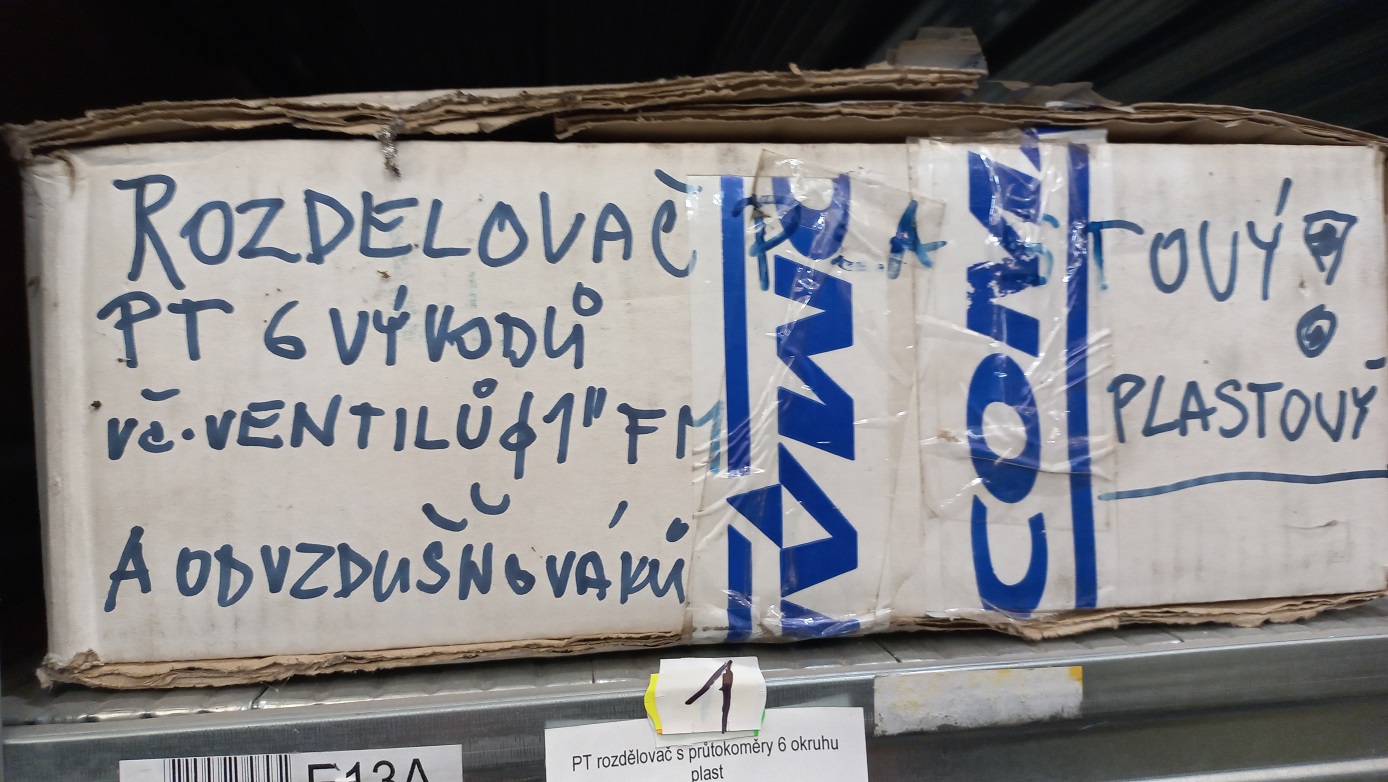 ROZDELOVAČ PLASTOVÝ
PT 6 VÝVODŮ
vč. VENTILŮ ϕ 1" FM
PLASTOVÝ
A ODVZDUŠŇOVÁKŮ
1
PT rozdělovač s průtokoměry 6 okruhu
plast
F13A